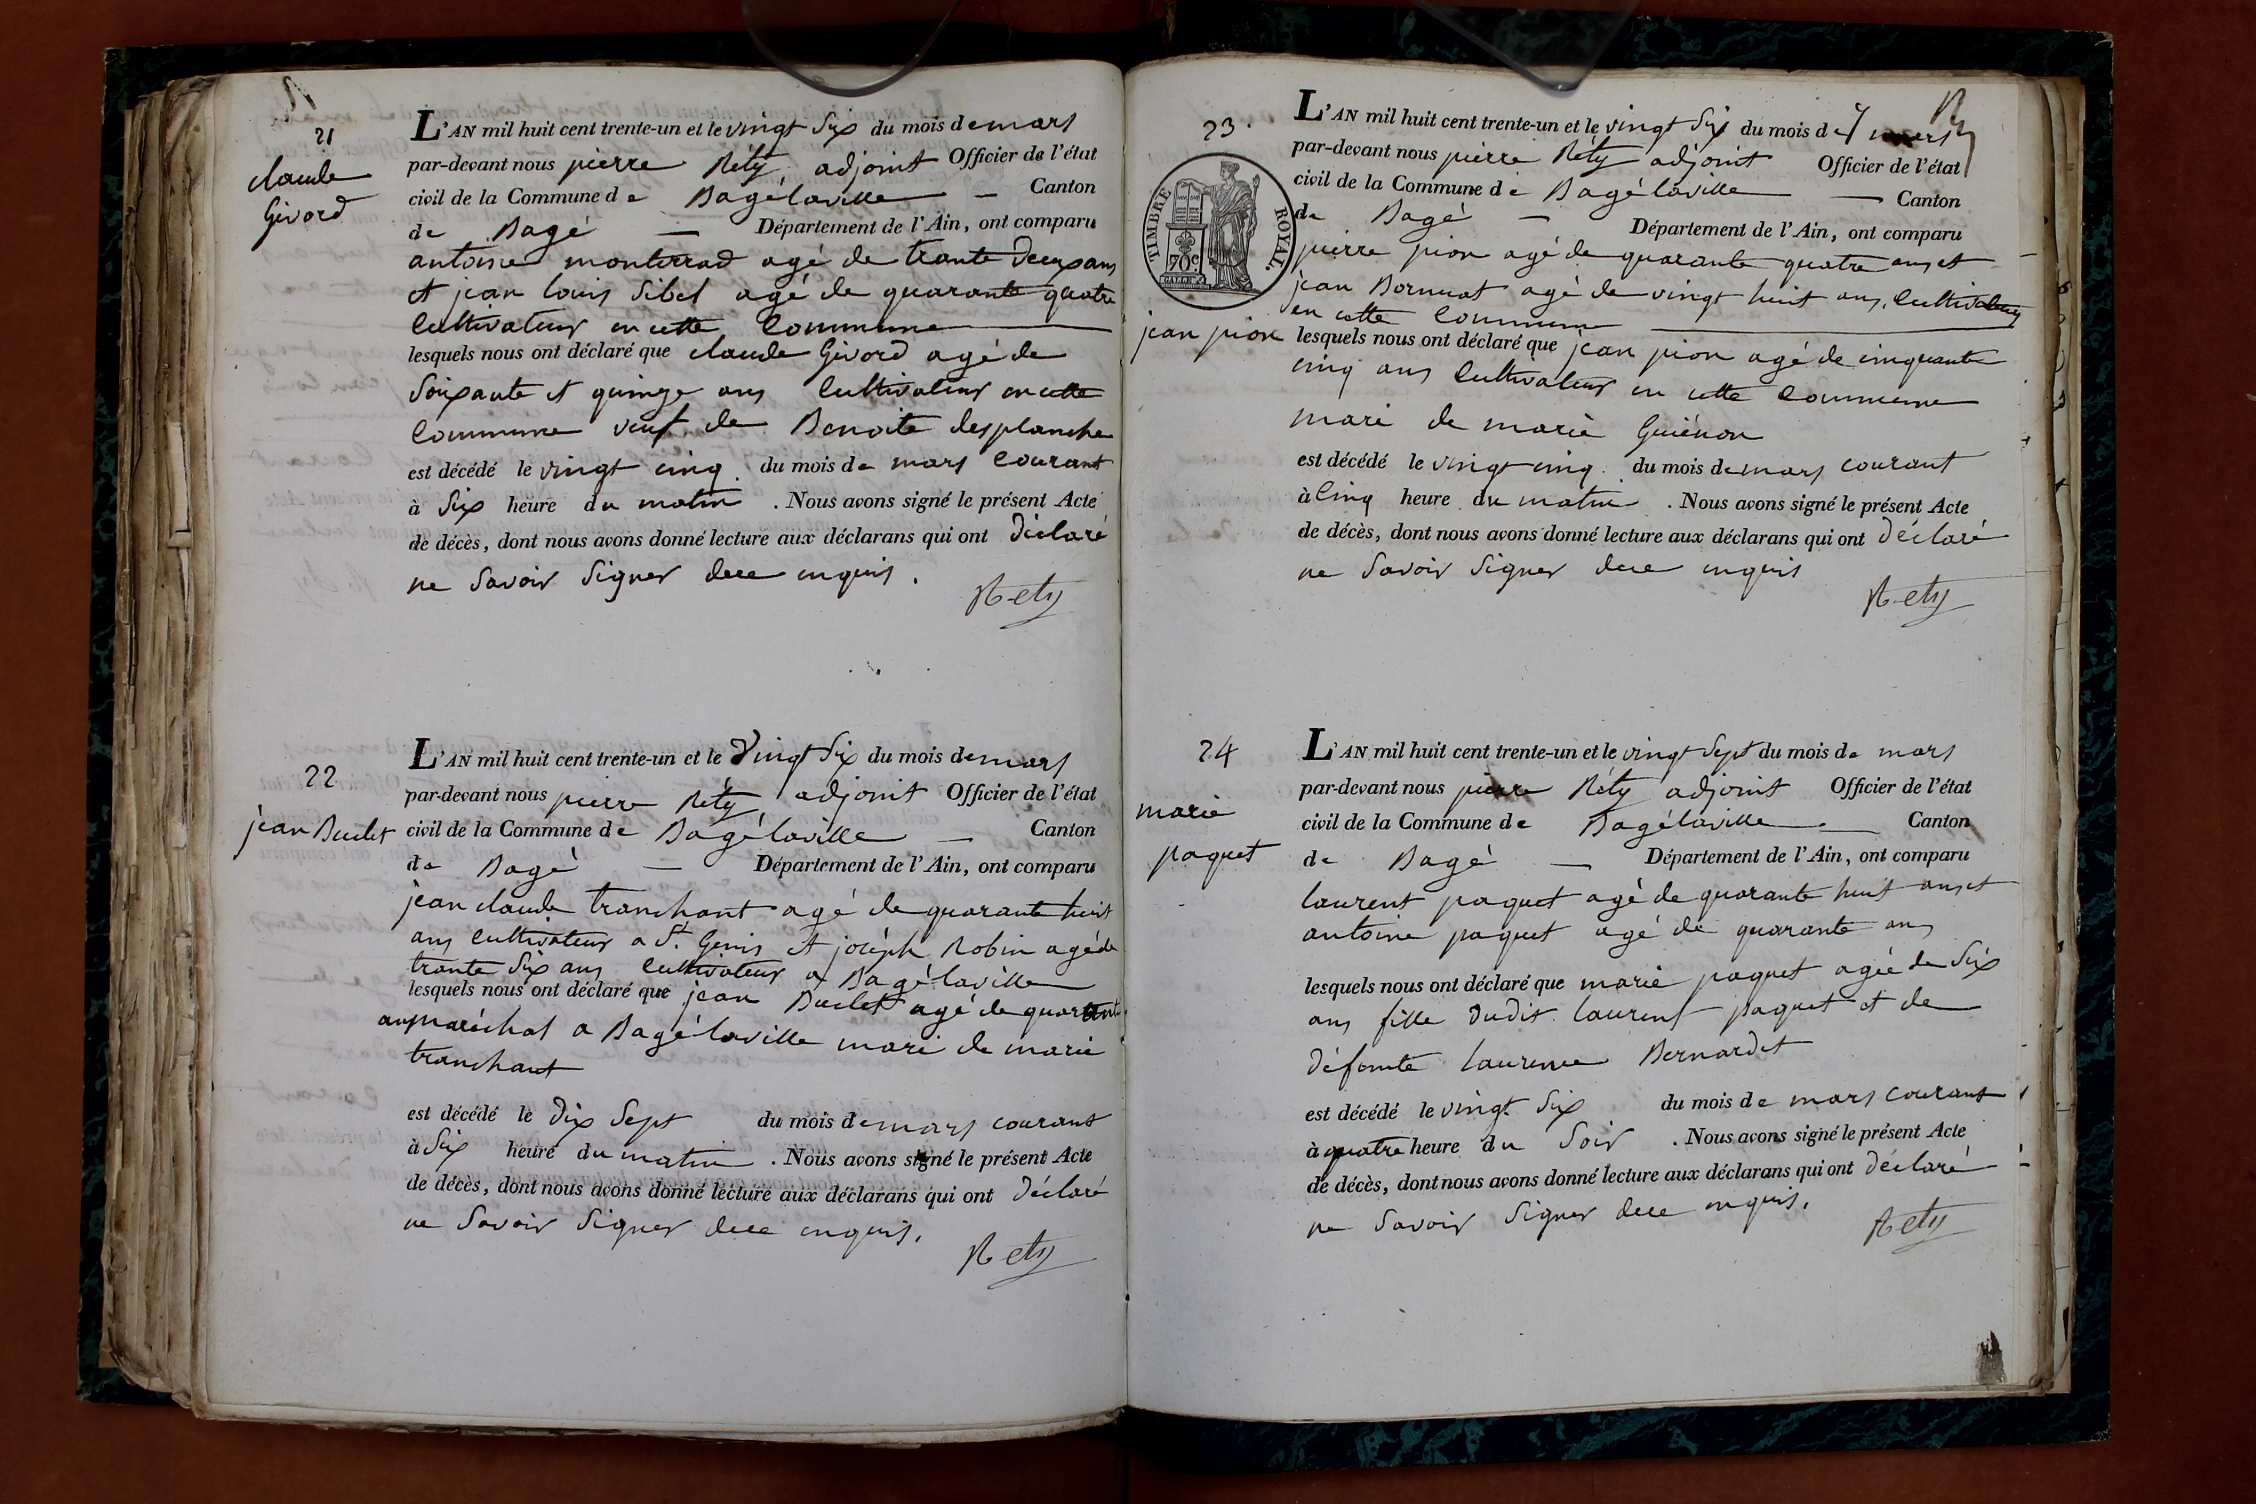 21
claude
Givord
L'AN mil huit cent trente-un et le vingt Six du mois de mars
par-devant nous pierre Réty adjoint Officier de l'état
civil de la Commune de Bagélaville — Canton
de Bagé — Département de l'Ain, ont comparu
antoine monterrad agé de trante deux ans
et jean louis Sibel agé de quarante quatre
Cultivateurs en cette Commune
lesquels nous ont déclaré que claude Givord agé de
Soixante et quinze ans Cultivateur en cette
Commune veuf de Benoite desplanche
est décédé le vingt cinq du mois de mars Courant
à Six heure du matin . Nous avons signé le présent Acte
de décès, dont nous avons donné lecture aux déclarans qui ont déclaré
ne Savoir Signer dece enquis.
Réty
22
jean Buclet
L'AN mil huit cent trente-un et le vingt Six du mois de mars
par-devant nous pierre Réty adjoint Officier de l'état
civil de la Commune de Bagélaville — Canton
de Bagé — Département de l'Ain, ont comparu
jean claude tranchant agé de quarante huit
ans Cultivateur a St. Genis et joséph Robin agé de
trante Six ans Cultivateur a Bagélaville
lesquels nous ont déclaré que jean Buclet agé de quarante
ans maréchal a Bagélaville mari de marie
tranchant
est décédé le dix Sept du mois de mars courant
à Six heure du matin . Nous avons signé le présent Acte
de décès, dont nous avons donné lecture aux déclarans qui ont déclaré
ne Savoir Signer dece enquis.
Réty
23
TIMBRE ROYAL.
70c
jean pion
L'AN mil huit cent trente-un et le vingt Six du mois de mars
par-devant nous pierre Réty adjoint Officier de l'état
civil de la Commune de Bagélaville — Canton
de Bagé — Département de l'Ain, ont comparu
pierre pion agé de quarante quatre ans et
jean Bornuat agé de vingt huit ans, Cultivateurs
en cette Commune
lesquels nous ont déclaré que jean pion agé de cinquante
cinq ans Cultivateur en cette Commune
mari de marie Guiénon
est décédé le vingt cinq du mois de mars courant
à Cinq heure du matin . Nous avons signé le présent Acte
de décès, dont nous avons donné lecture aux déclarans qui ont déclaré
ne Savoir Signer dece enquis
Réty
24
marie
paquet
L'AN mil huit cent trente-un et le vingt Sept du mois de mars
par-devant nous pierre Réty adjoint Officier de l'état
civil de la Commune de Bagélaville — Canton
de Bagé — Département de l'Ain, ont comparu
laurent paquet agé de quarante huit ans et
antoine paquet agé de quarante ans
lesquels nous ont déclaré que marie paquet agée de Six
ans fille dudit laurent paquet et de
défointe laurence Bernardet
est décédé le vingt Six du mois de mars courant
à quatre heure du Soir . Nous avons signé le présent Acte
de décès, dont nous avons donné lecture aux déclarans qui ont déclaré
ne Savoir Signer dece enquis.
Réty